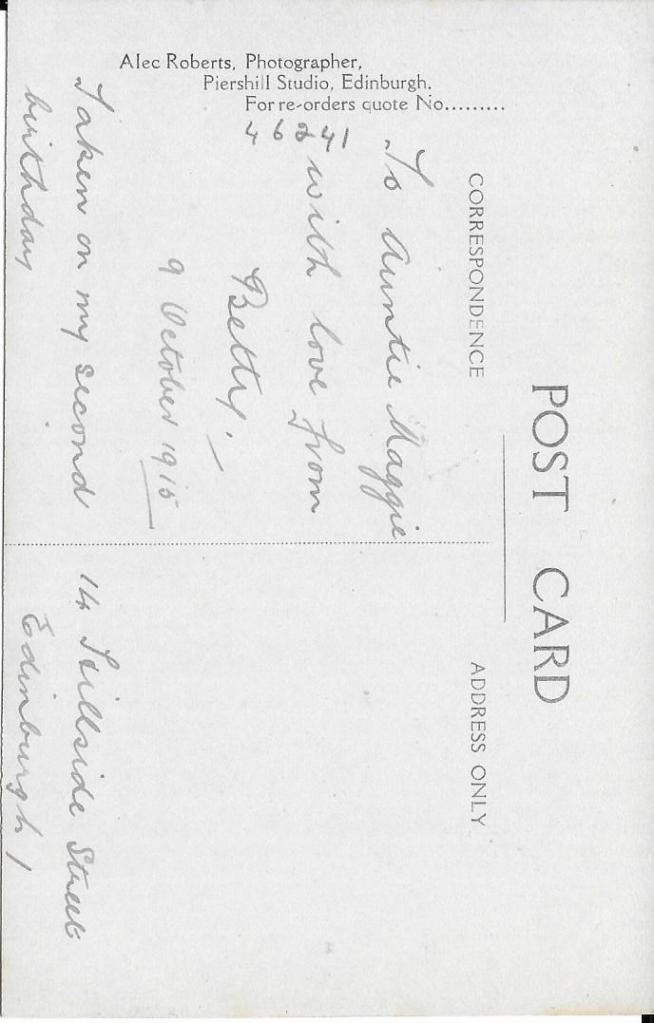 POST CARD
CORRESPONDENCE
ADDRESS ONLY
Alec Roberts, Photographer,
Piershill Studio, Edinburgh.
For re-orders quote No.........
46241
To Auntie Maggie
with love from
Betty.
9 October 1915
Taken on my second
birthday
14 Hillside Street
Edinburgh